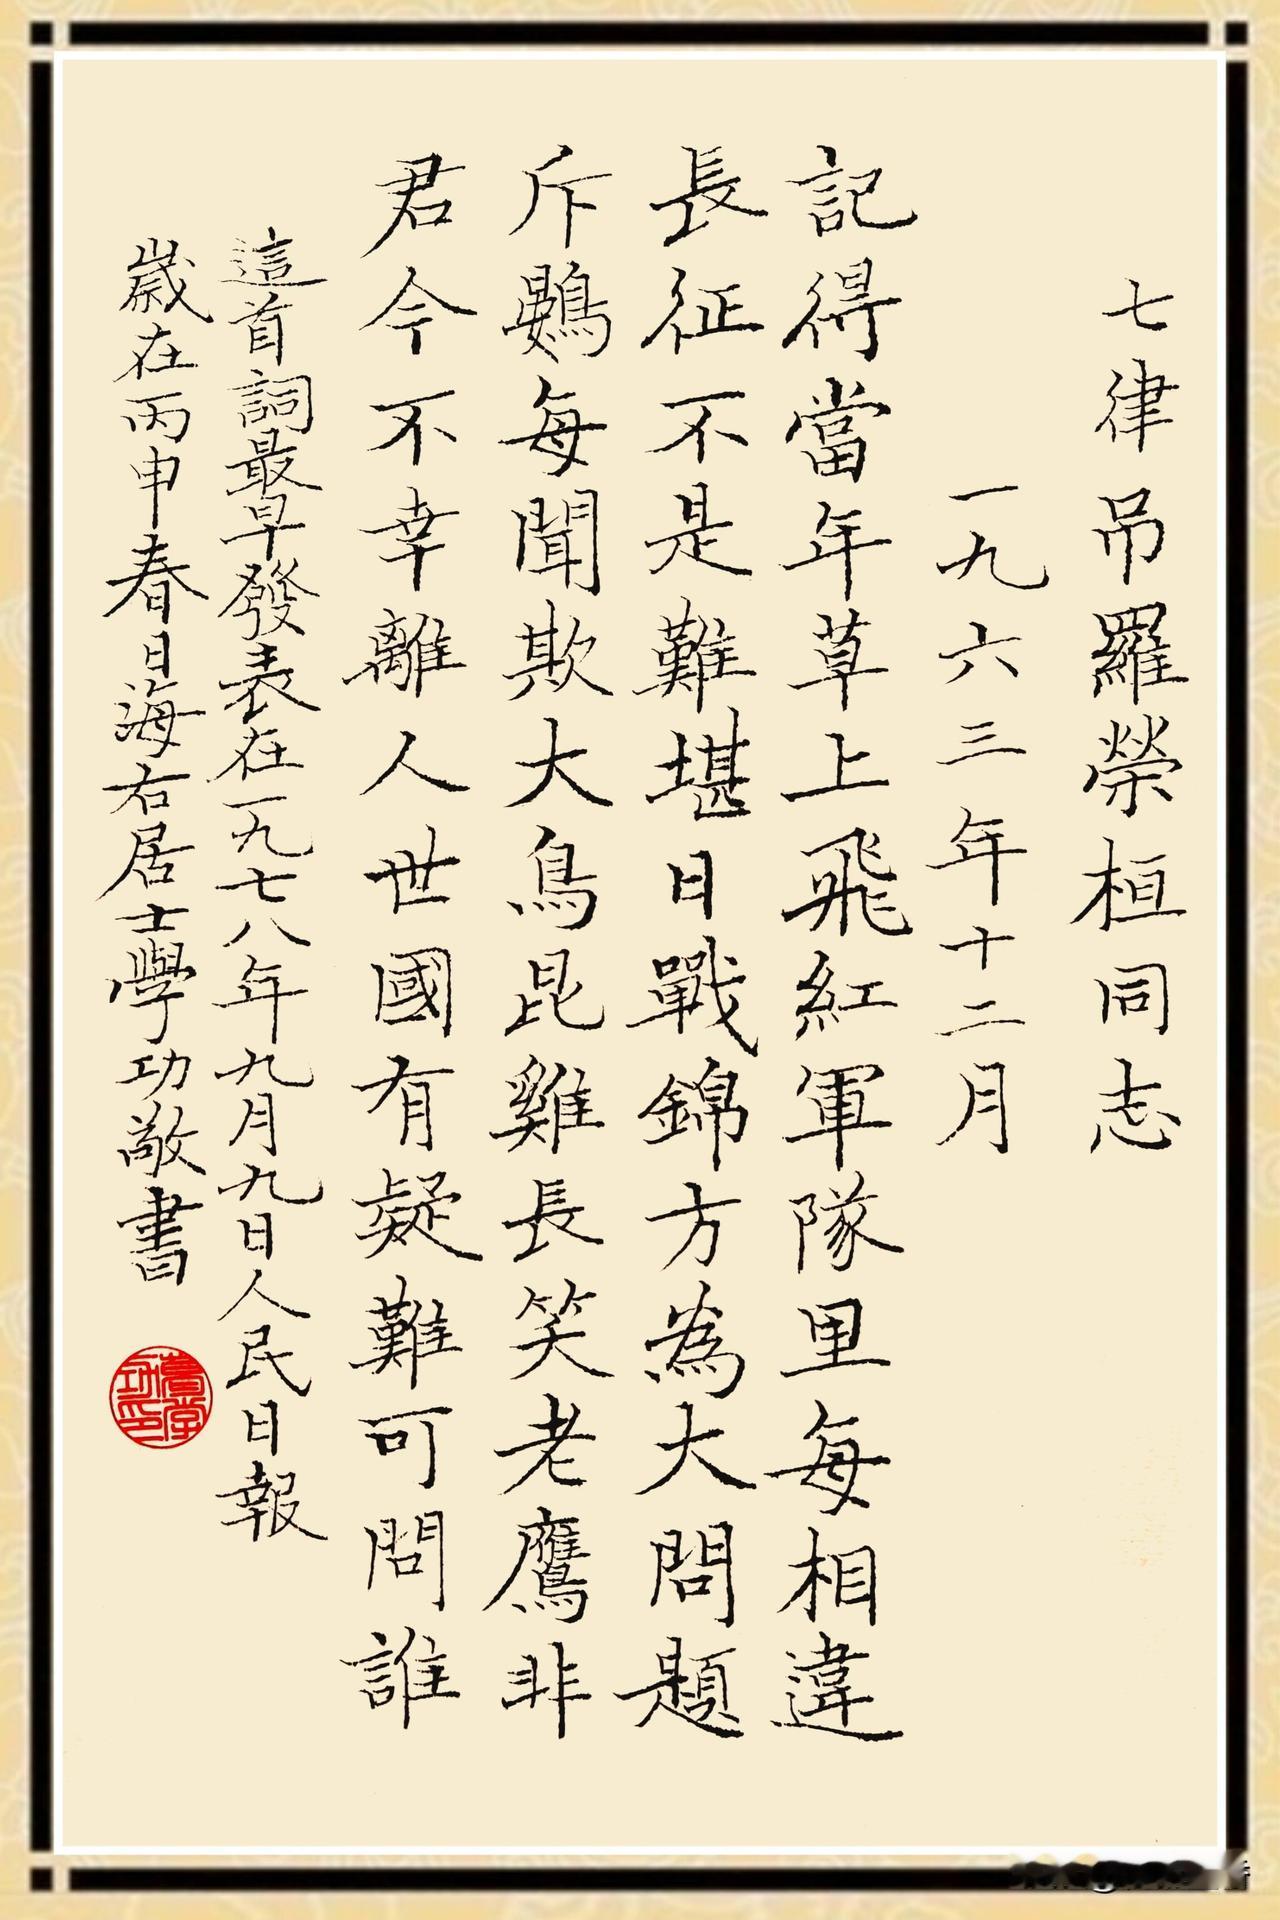 七律吊羅榮桓同志
一九六三年十二月
記得當年草上飛紅軍隊里每相違
長征不是難堪日戰錦方為大問題
斥鷃每聞欺大鳥昆雞長笑老鷹非
君今不幸離人世國有疑難可問誰
這首詞最早發表在一九七八年九月九日人民日報
歲在丙申春日海右居士學功敬書